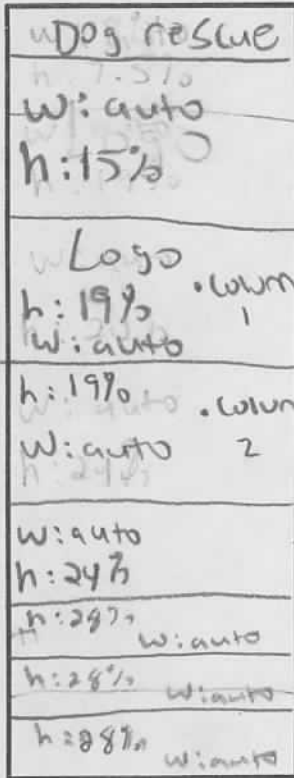 Dog rescue
w: auto
h: 15%
Logo
h: 19% .column
1
w: auto
h: 19% .colum
w: auto 2
w: auto
h: 24%
h: 28%
w: auto
h: 28% w: auto
h: 28%
w: auto